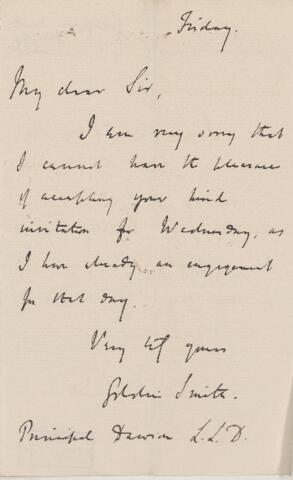 Friday.
My dear Sir,
I am very sorry that
I cannot have the pleasure
of accepting your kind
invitation for Wednesday, as
I have already an engagement
for that day.
Very tly yours
Goldwin Smith.
Principal Dawson L.L.D.